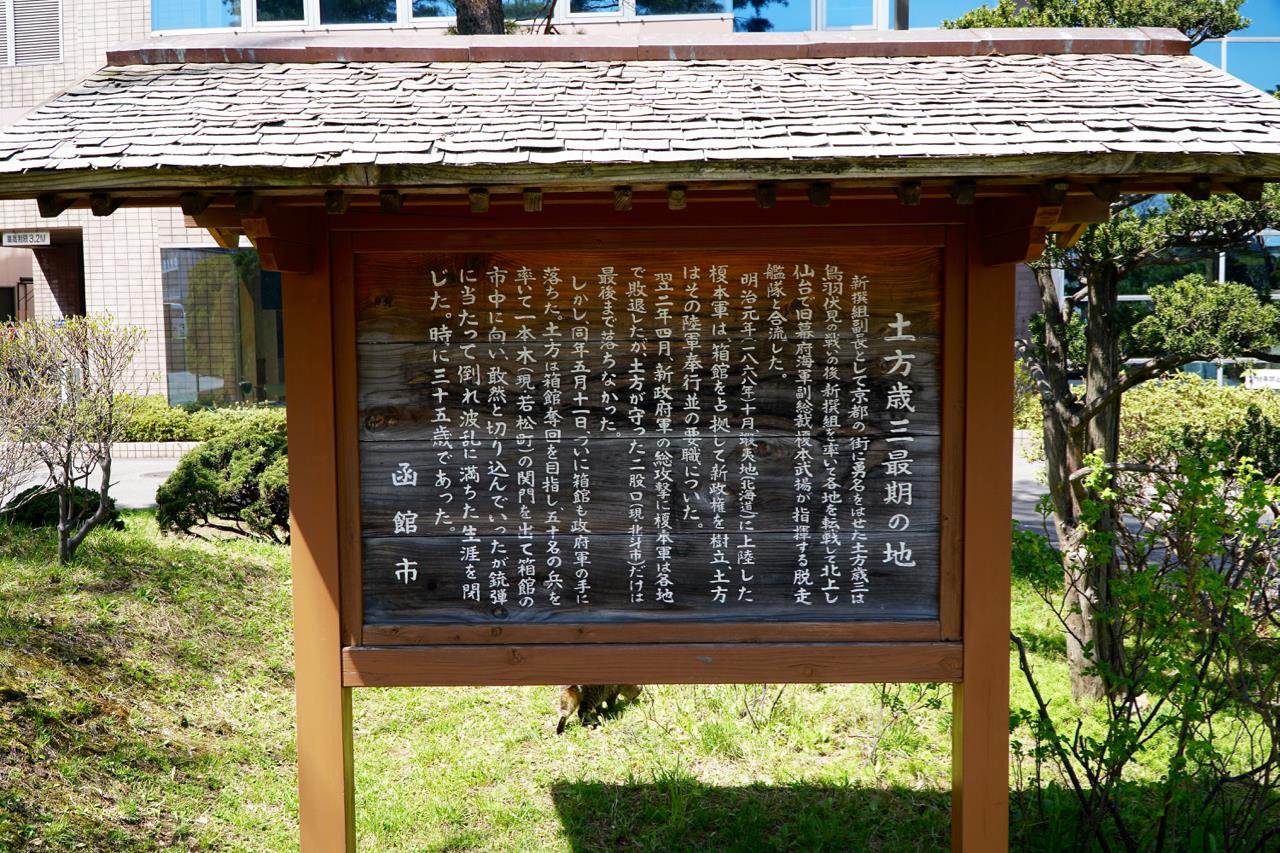 土方歳三最期の地
新撰組副長として京都の街に勇名をはせた土方歳三は
鳥羽伏見の戦いの後新撰組を率いて各地を転戦して北上し
仙台で旧幕府海軍副総裁榎本武揚が指揮する脱走
艦隊と合流した。
明治元年(一八六八年)十月、蝦夷地(北海道)に上陸した
榎本軍は、箱館を占拠して新政権を樹立、土方
はその陸軍奉行並の要職についた。
翌二年四月、新政府軍の総攻撃に榎本軍は各地
で敗退したが、土方が守った二股口(現・北斗市)だけは
最後まで落ちなかった。
しかし、同年五月十一日、ついに箱館も政府軍の手に
落ちた。土方は箱館奪回を目指し、五十名の兵を
率いて一本木(現・若松町)の関門を出て箱館の
市中に向い、敢然と切り込んでいったが銃弾
に当たって倒れ波乱に満ちた生涯を閉
じた。時に三十五歳であった。
函館市